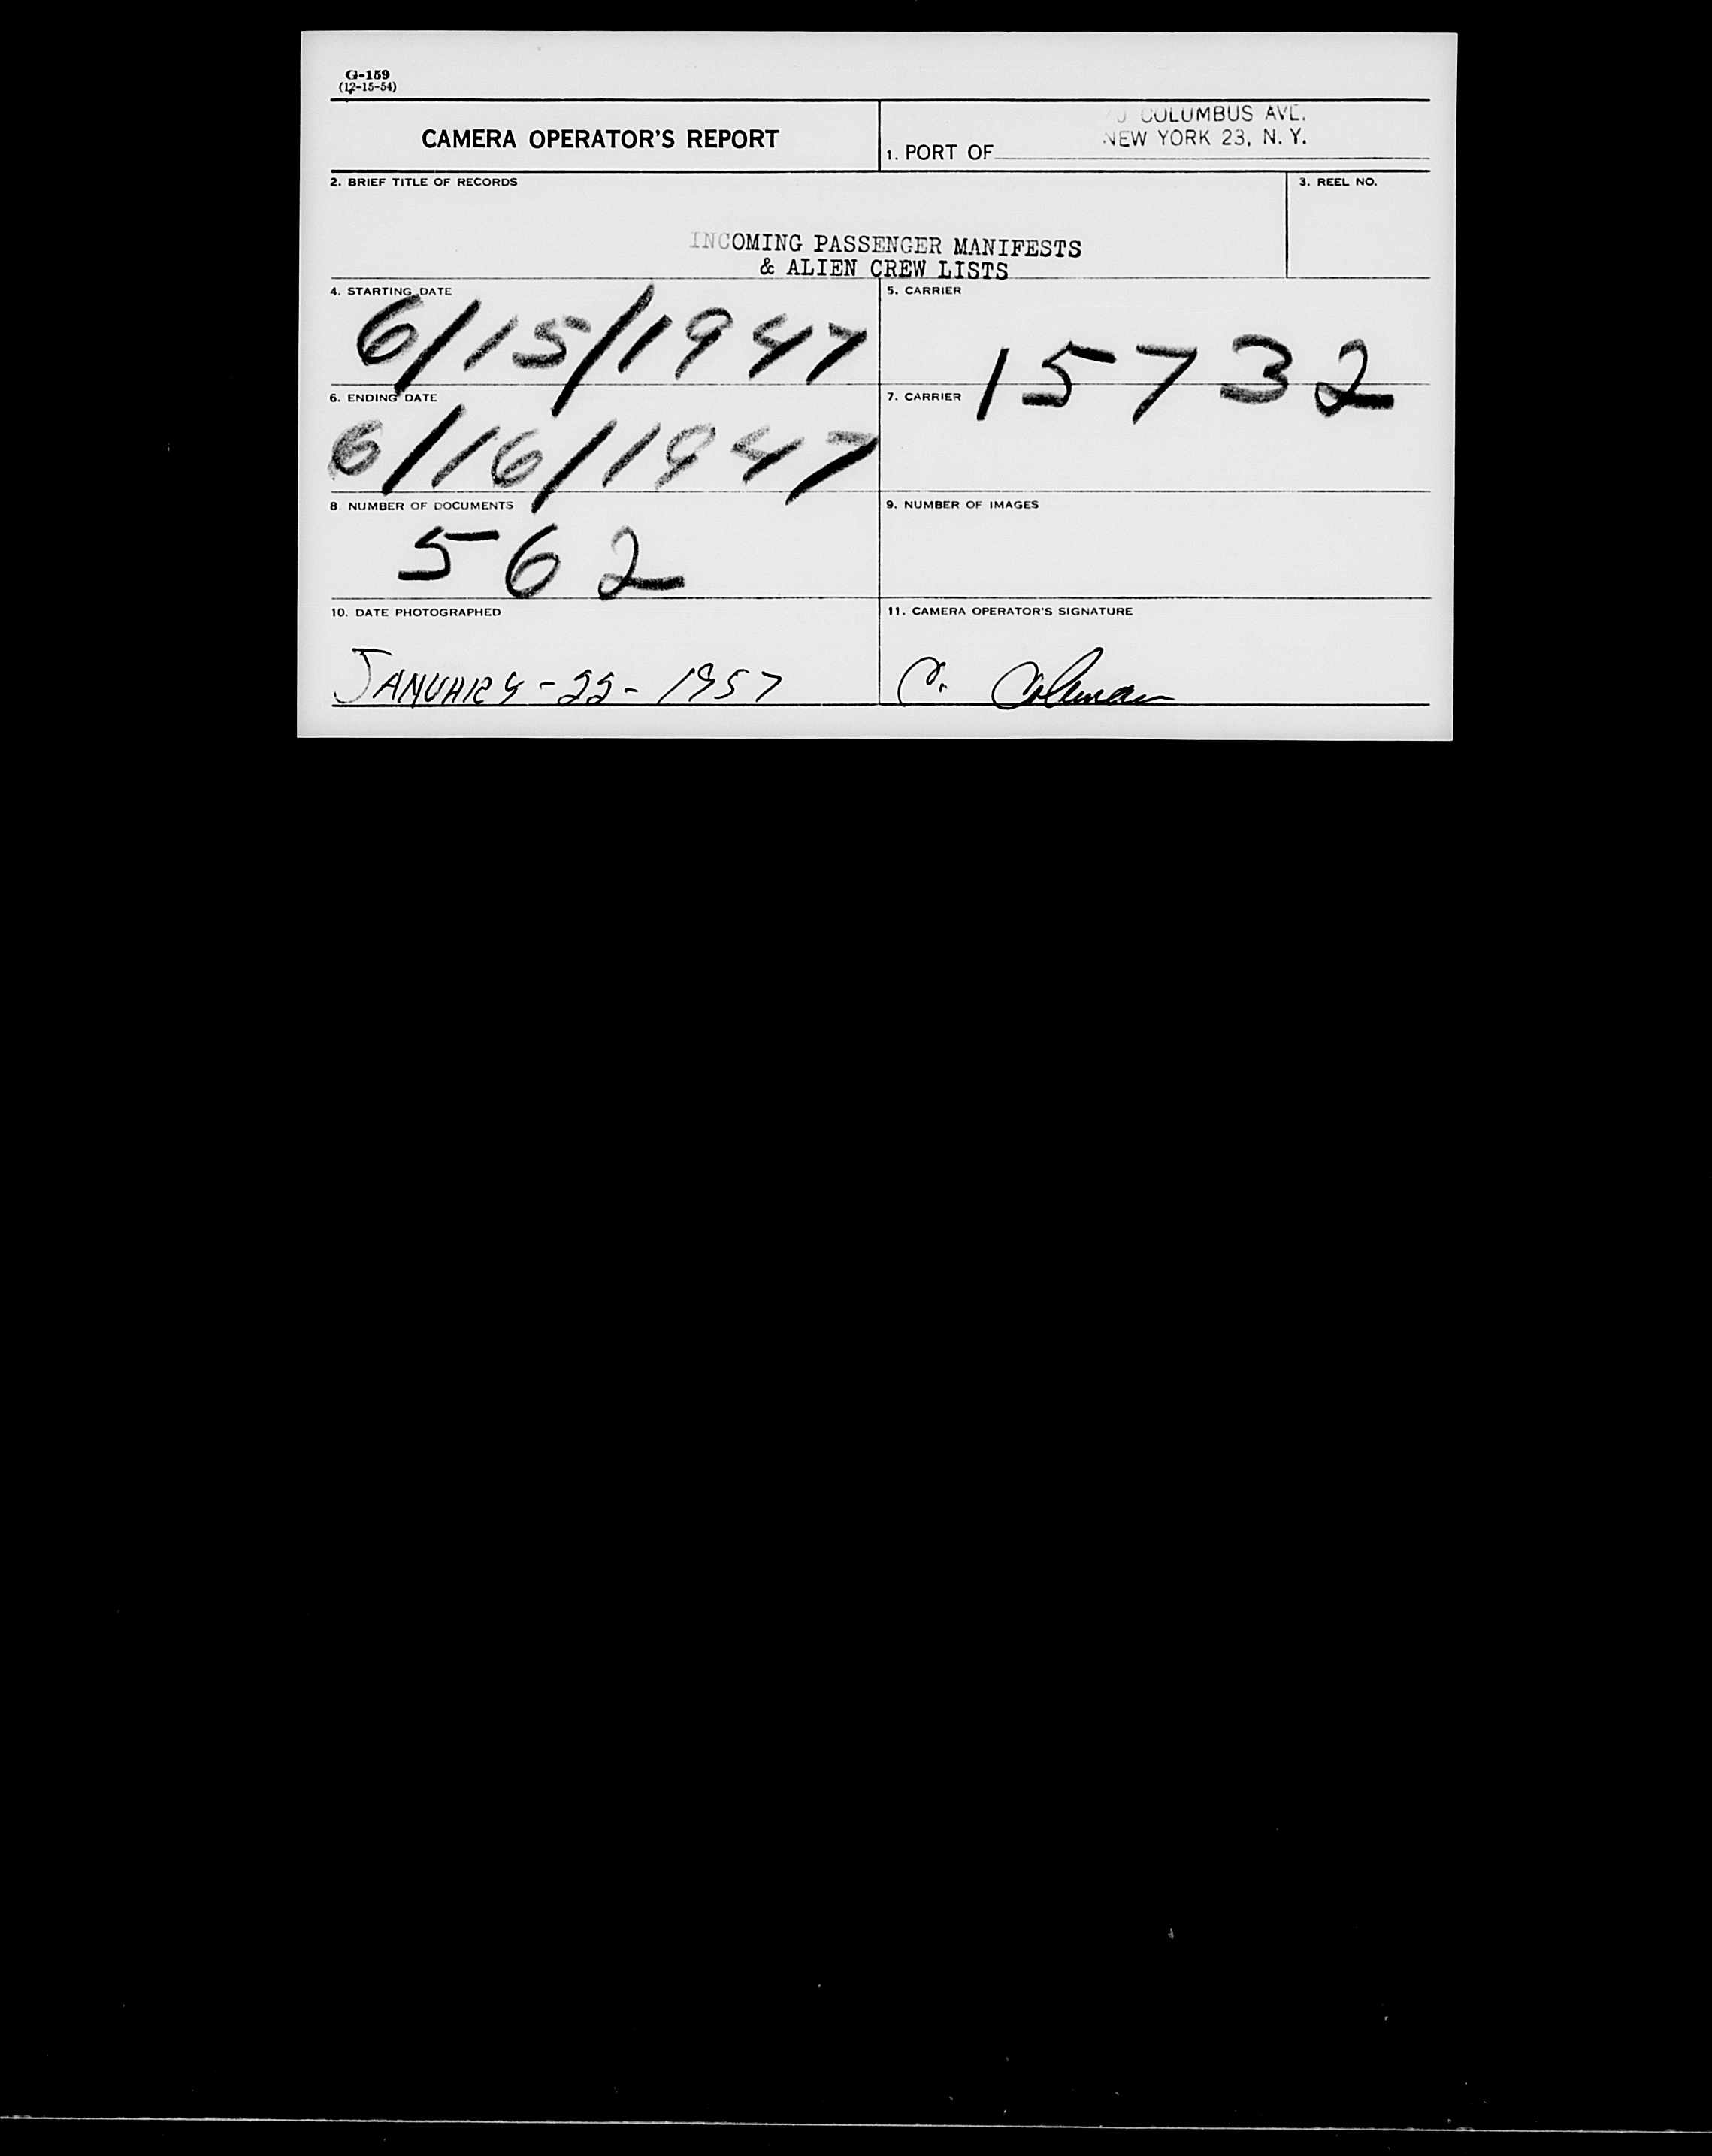 G-159
(12-15-54)
CAMERA OPERATOR'S REPORT
COLUMBUS AVE.
NEW YORK 23, N. Y.
1. PORT OF
2. BRIEF TITLE OF RECORDS
3. REEL NO.
INCOMING PASSENGER MANIFESTS
& ALIEN CREW LISTS
4. STARTING DATE
6/15/1947
5. CARRIER
15732
6. ENDING DATE
6/16/1947
7. CARRIER
8. NUMBER OF DOCUMENTS
562
9. NUMBER OF IMAGES
10. DATE PHOTOGRAPHED
JANUARY - 22 - 1957
11. CAMERA OPERATOR'S SIGNATURE
C. Coleman